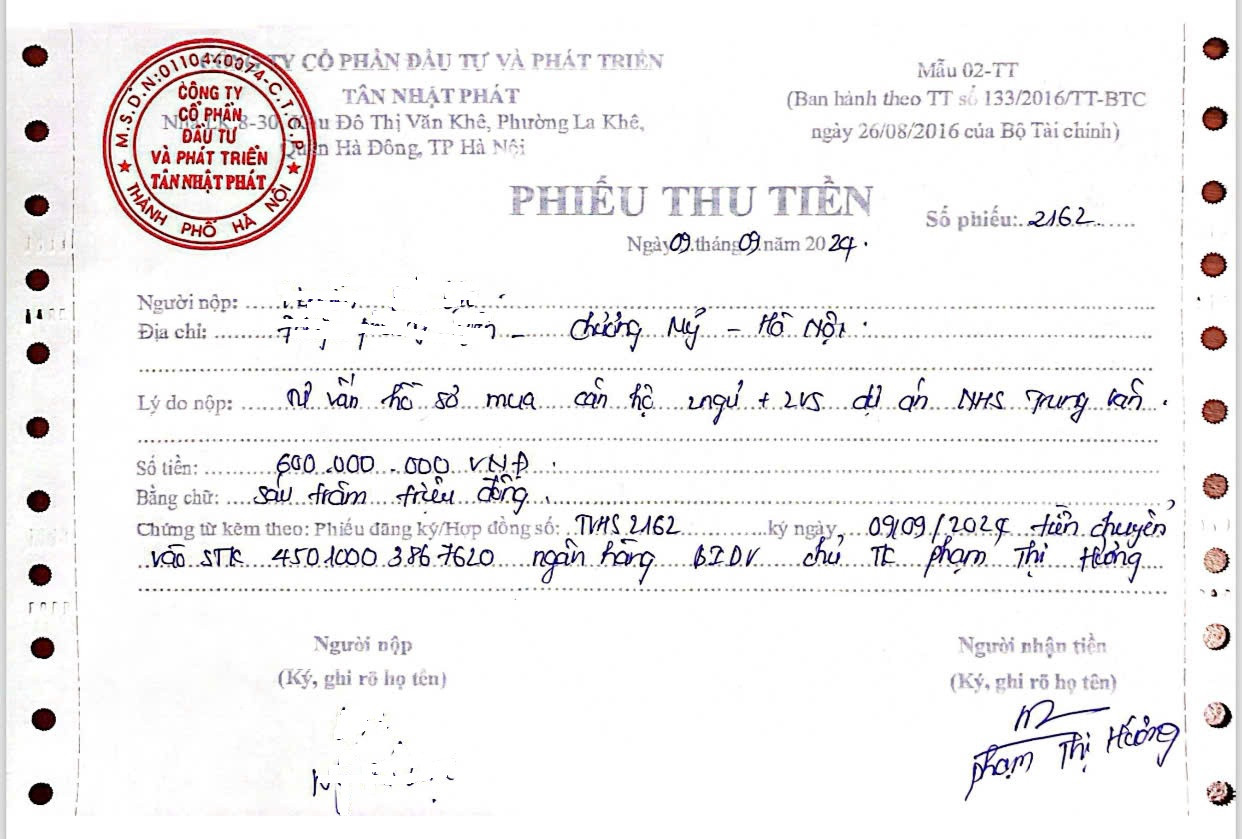 CÔNG TY CỔ PHẦN ĐẦU TƯ VÀ PHÁT TRIỂN
TÂN NHẬT PHÁT
8-30, Khu Đô Thị Văn Khê, Phường La Khê,
Quận Hà Đông, TP Hà Nội
M.S.D.N:0110440394-C.T.C.P
CÔNG TY
CỔ PHẦN
ĐẦU TƯ
VÀ PHÁT TRIỂN
TÂN NHẬT PHÁT
THÀNH PHỐ HÀ NỘI
Mẫu 02-TT
(Ban hành theo TT số 133/2016/TT-BTC
ngày 26/08/2016 của Bộ Tài chính)
PHIẾU THU TIỀN
Số phiếu: 2162
Ngày 09 tháng 09 năm 2024.
Người nộp:
Địa chỉ: - Chương Mỹ - Hà Nội.
Lý do nộp: Tư vấn hồ sơ mua căn hộ 2ngủ + 2VS dự án NHS Trung Văn.
Số tiền: 600.000.000 VNĐ.
Bằng chữ: Sáu trăm triệu đồng.
Chứng từ kèm theo: Phiếu đăng ký/Hợp đồng số: TVHS 2162 ký ngày, 09/09/2024 tiền chuyển
vào STK 45010003867620 ngân hàng BIDV chủ TK Phạm Thị Hường
Người nộp
(Ký, ghi rõ họ tên)
Người nhận tiền
(Ký, ghi rõ họ tên)
Phạm Thị Hường